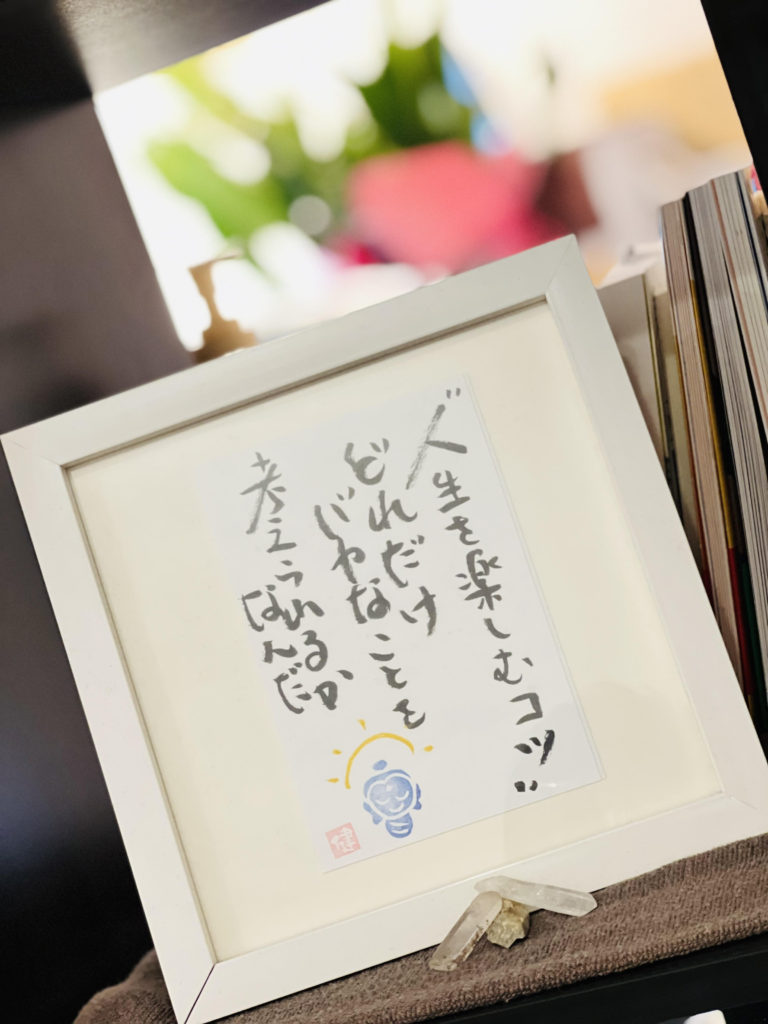 〝人生を楽しむコツ〟
どれだけ
ばかなことを
考えられるか
なんだ
健